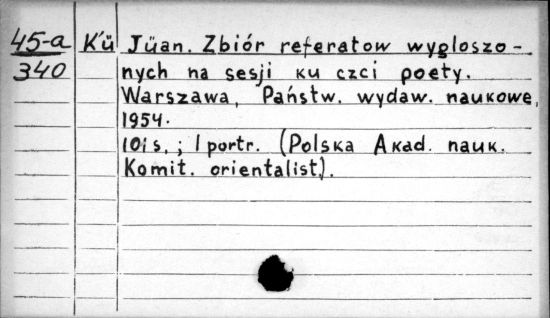 45-a K'ü Jüan. Zbiór referatow wygloszo-
340 nych na sesji ku czci poety.
Warszawa, Państw. wydaw. naukowe,
1954.
101 s.; 1 portr. (Polska Akad. nauk.
Komit. orientalist.).